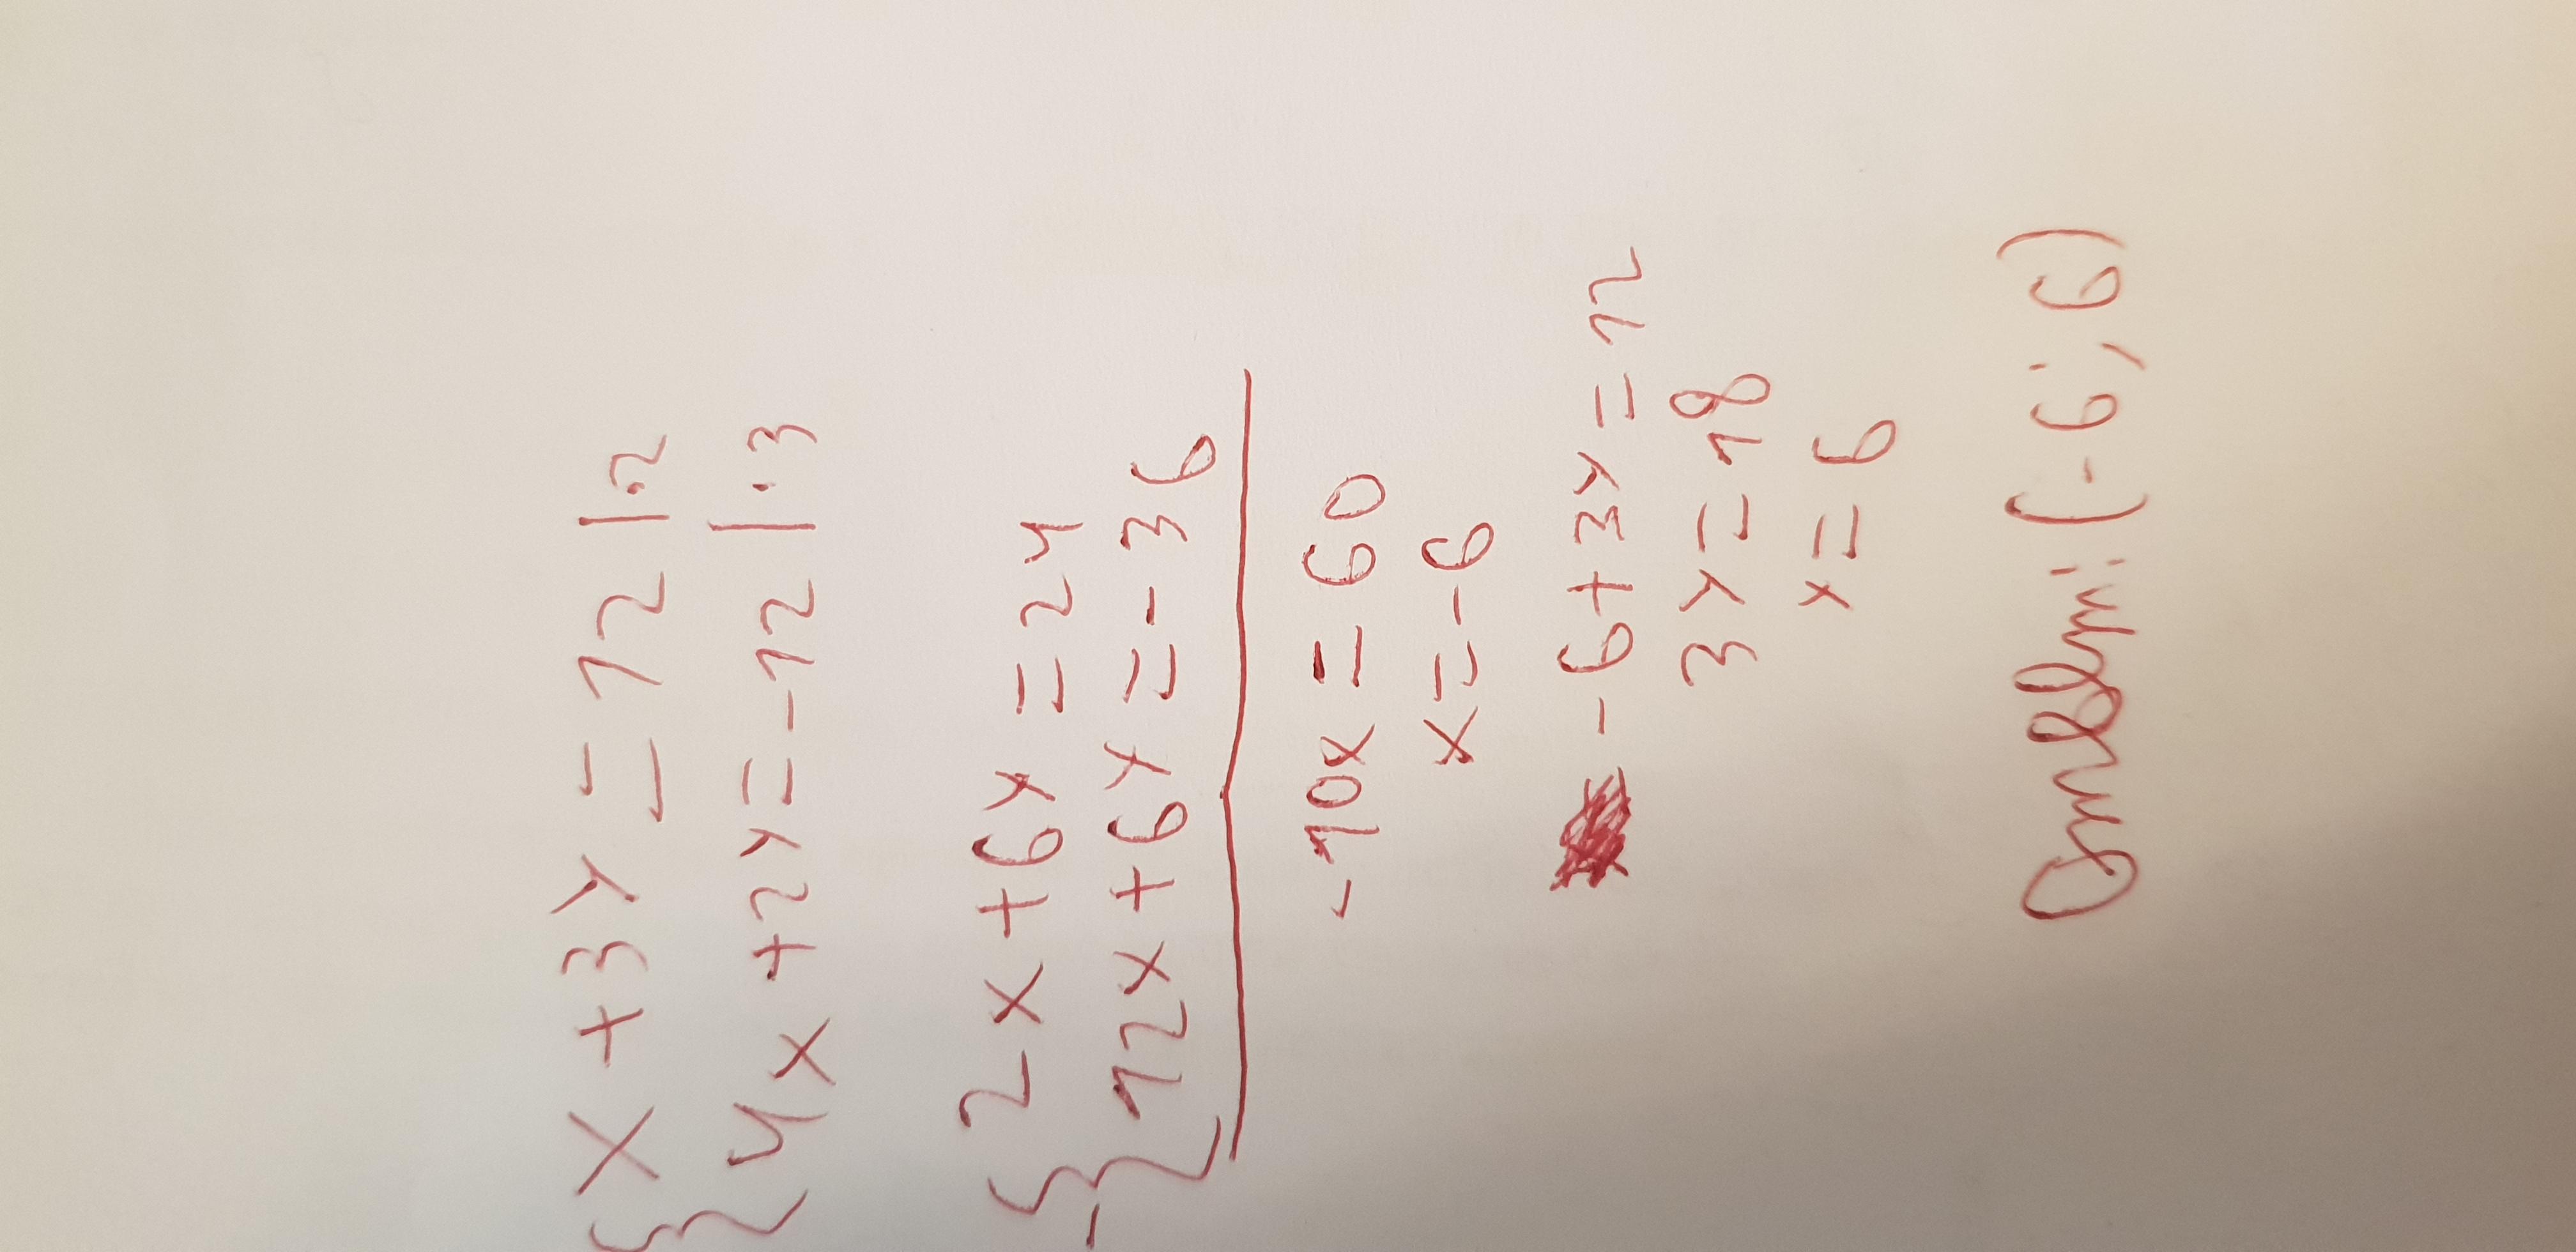 { x + 3y = 12 |·2
4x + 2y = -12 |·3
{ 2x + 6y = 24
- 12x + 6y = -36
-10x = 60
x = -6
-6 + 3y = 12
3y = 18
y = 6
Ответ: (-6; 6)